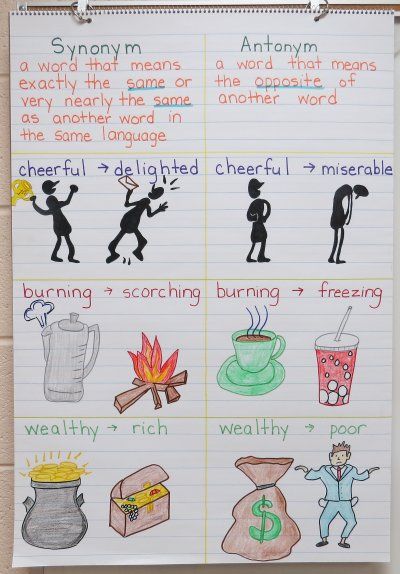 Synonym
a word that means
exactly the same or
very nearly the same
as another word in
the same language
Antonym
a word that means
the opposite of
another word
cheerful → delighted
cheerful → miserable
burning → scorching
burning → freezing
wealthy → rich
wealthy → poor
$